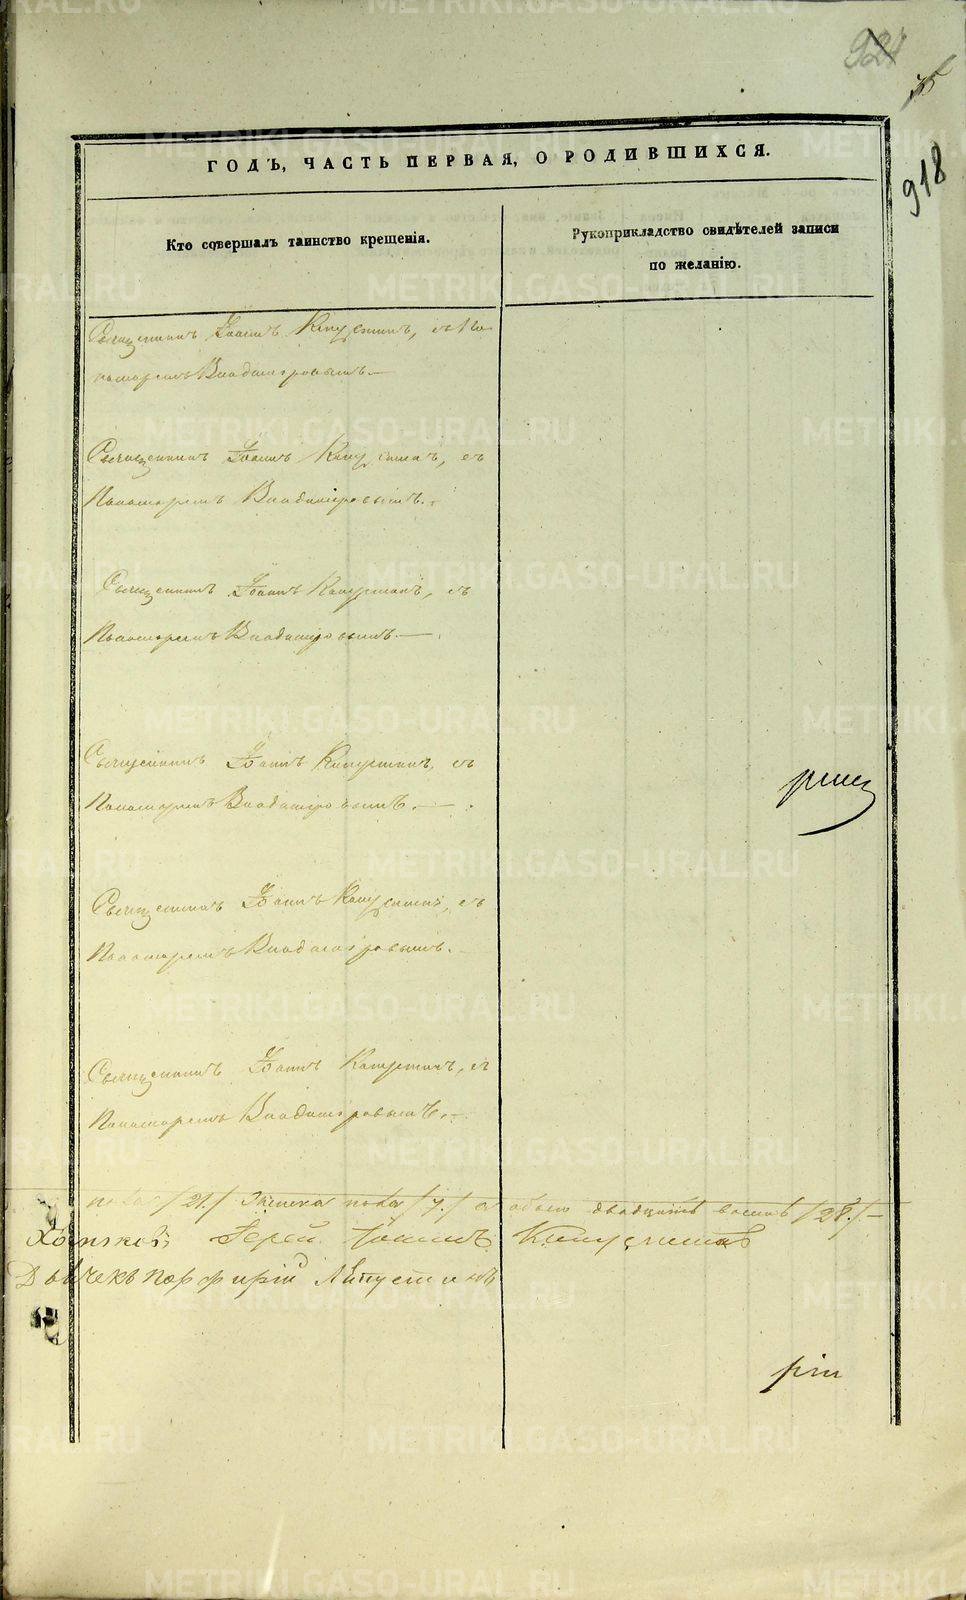 924
918
ГОДЪ, ЧАСТЬ ПЕРВАЯ, О РОДИВШИХСЯ.
Кто совершалъ таинство крещенія.
Рукоприкладство свидѣтелей записи
по желанію.
Священникъ Іоаннъ Капустинъ, съ По-
номаремъ Владиміровымъ.—
Священникъ Іоаннъ Капустинъ, съ
Пономаремъ Владиміровымъ.
Священникъ Іоаннъ Капустинъ, съ
Пономаремъ Владиміровымъ.—
Священникъ Іоаннъ Капустинъ, съ
Пономаремъ Владиміровымъ.—
Священникъ Іоаннъ Капустинъ, съ
Пономаремъ Владиміровымъ.
Священникъ Іоаннъ Капустинъ, съ
Пономаремъ Владиміровымъ.—
пола /21./ Женска пола /7./ а обоего двадцать восемь /28./—
Іерей Іоаннъ Капустинъ
Дьячекъ Порфирій
METRIKI.GASO-URAL.RU